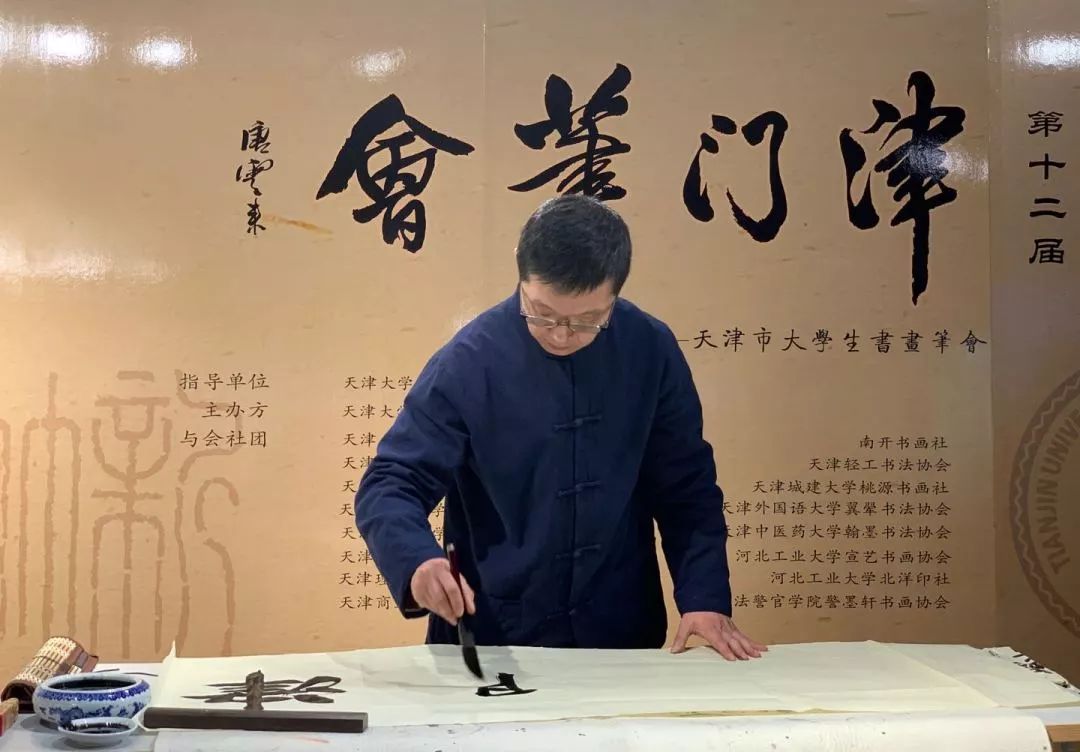 第十二届
津门筆會
唐雲来
天津市大學生書畫筆會
指导单位
主办方
与会社团
天津大学
天津大
天津
天津
天津
天津理
天津商
南开书画社
天津轻工书法协会
天津城建大学桃源书画社
天津外国语大学翼翚书法协会
天津中医药大学翰墨书法协会
河北工业大学宣艺书画协会
河北工业大学北洋印社
法警官学院警墨轩书画协会
TIANJIN UNIVE